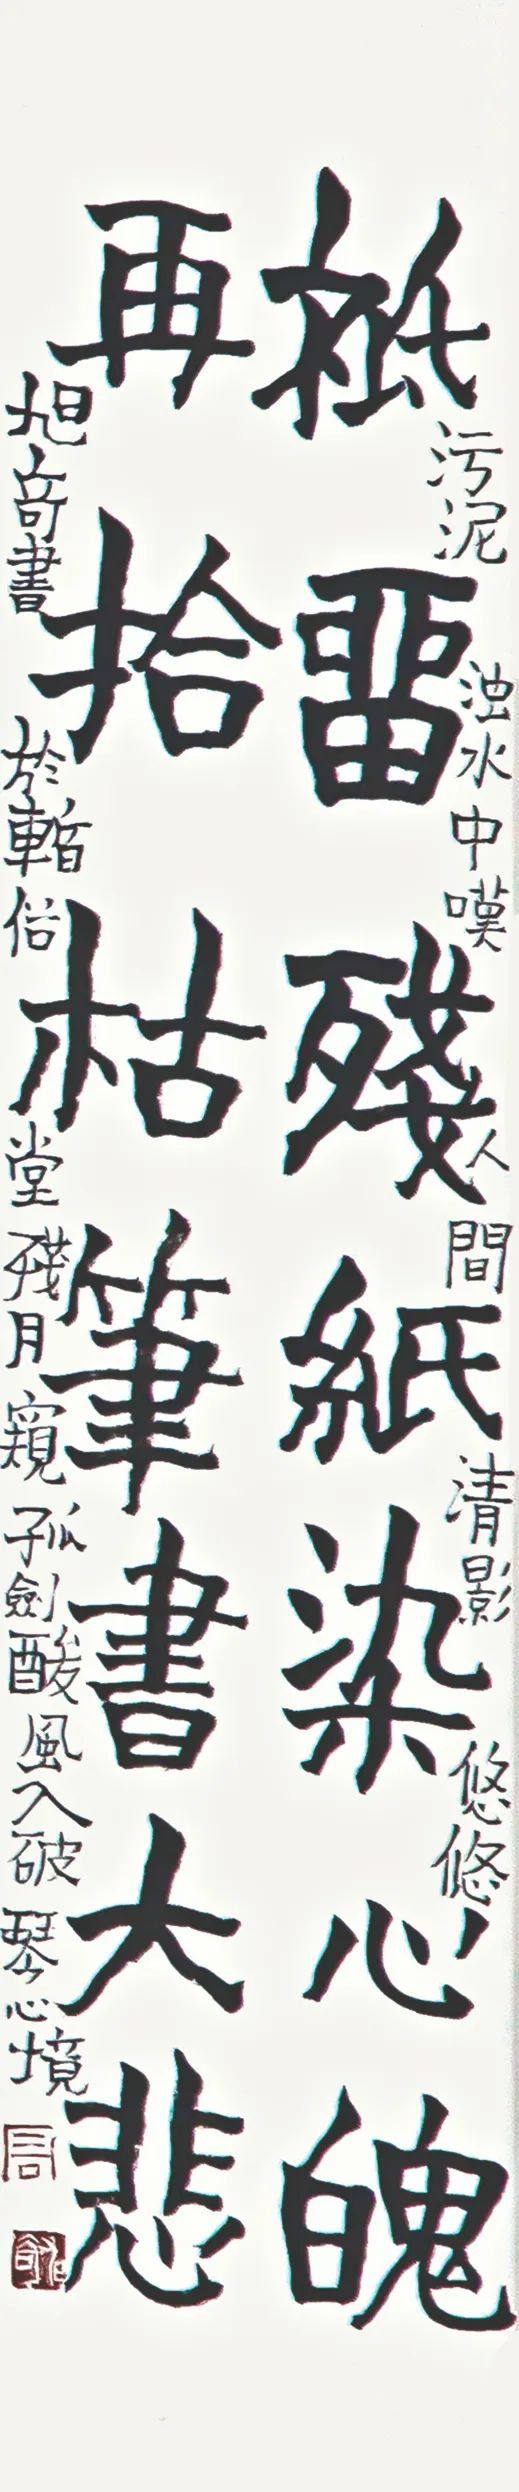 污泥浊水中嘆人間清影悠悠
祗畱殘紙染心魄
再拾枯筆書大悲
旭奇書於暗俗堂殘月窺孤劍酸風入破琴心境